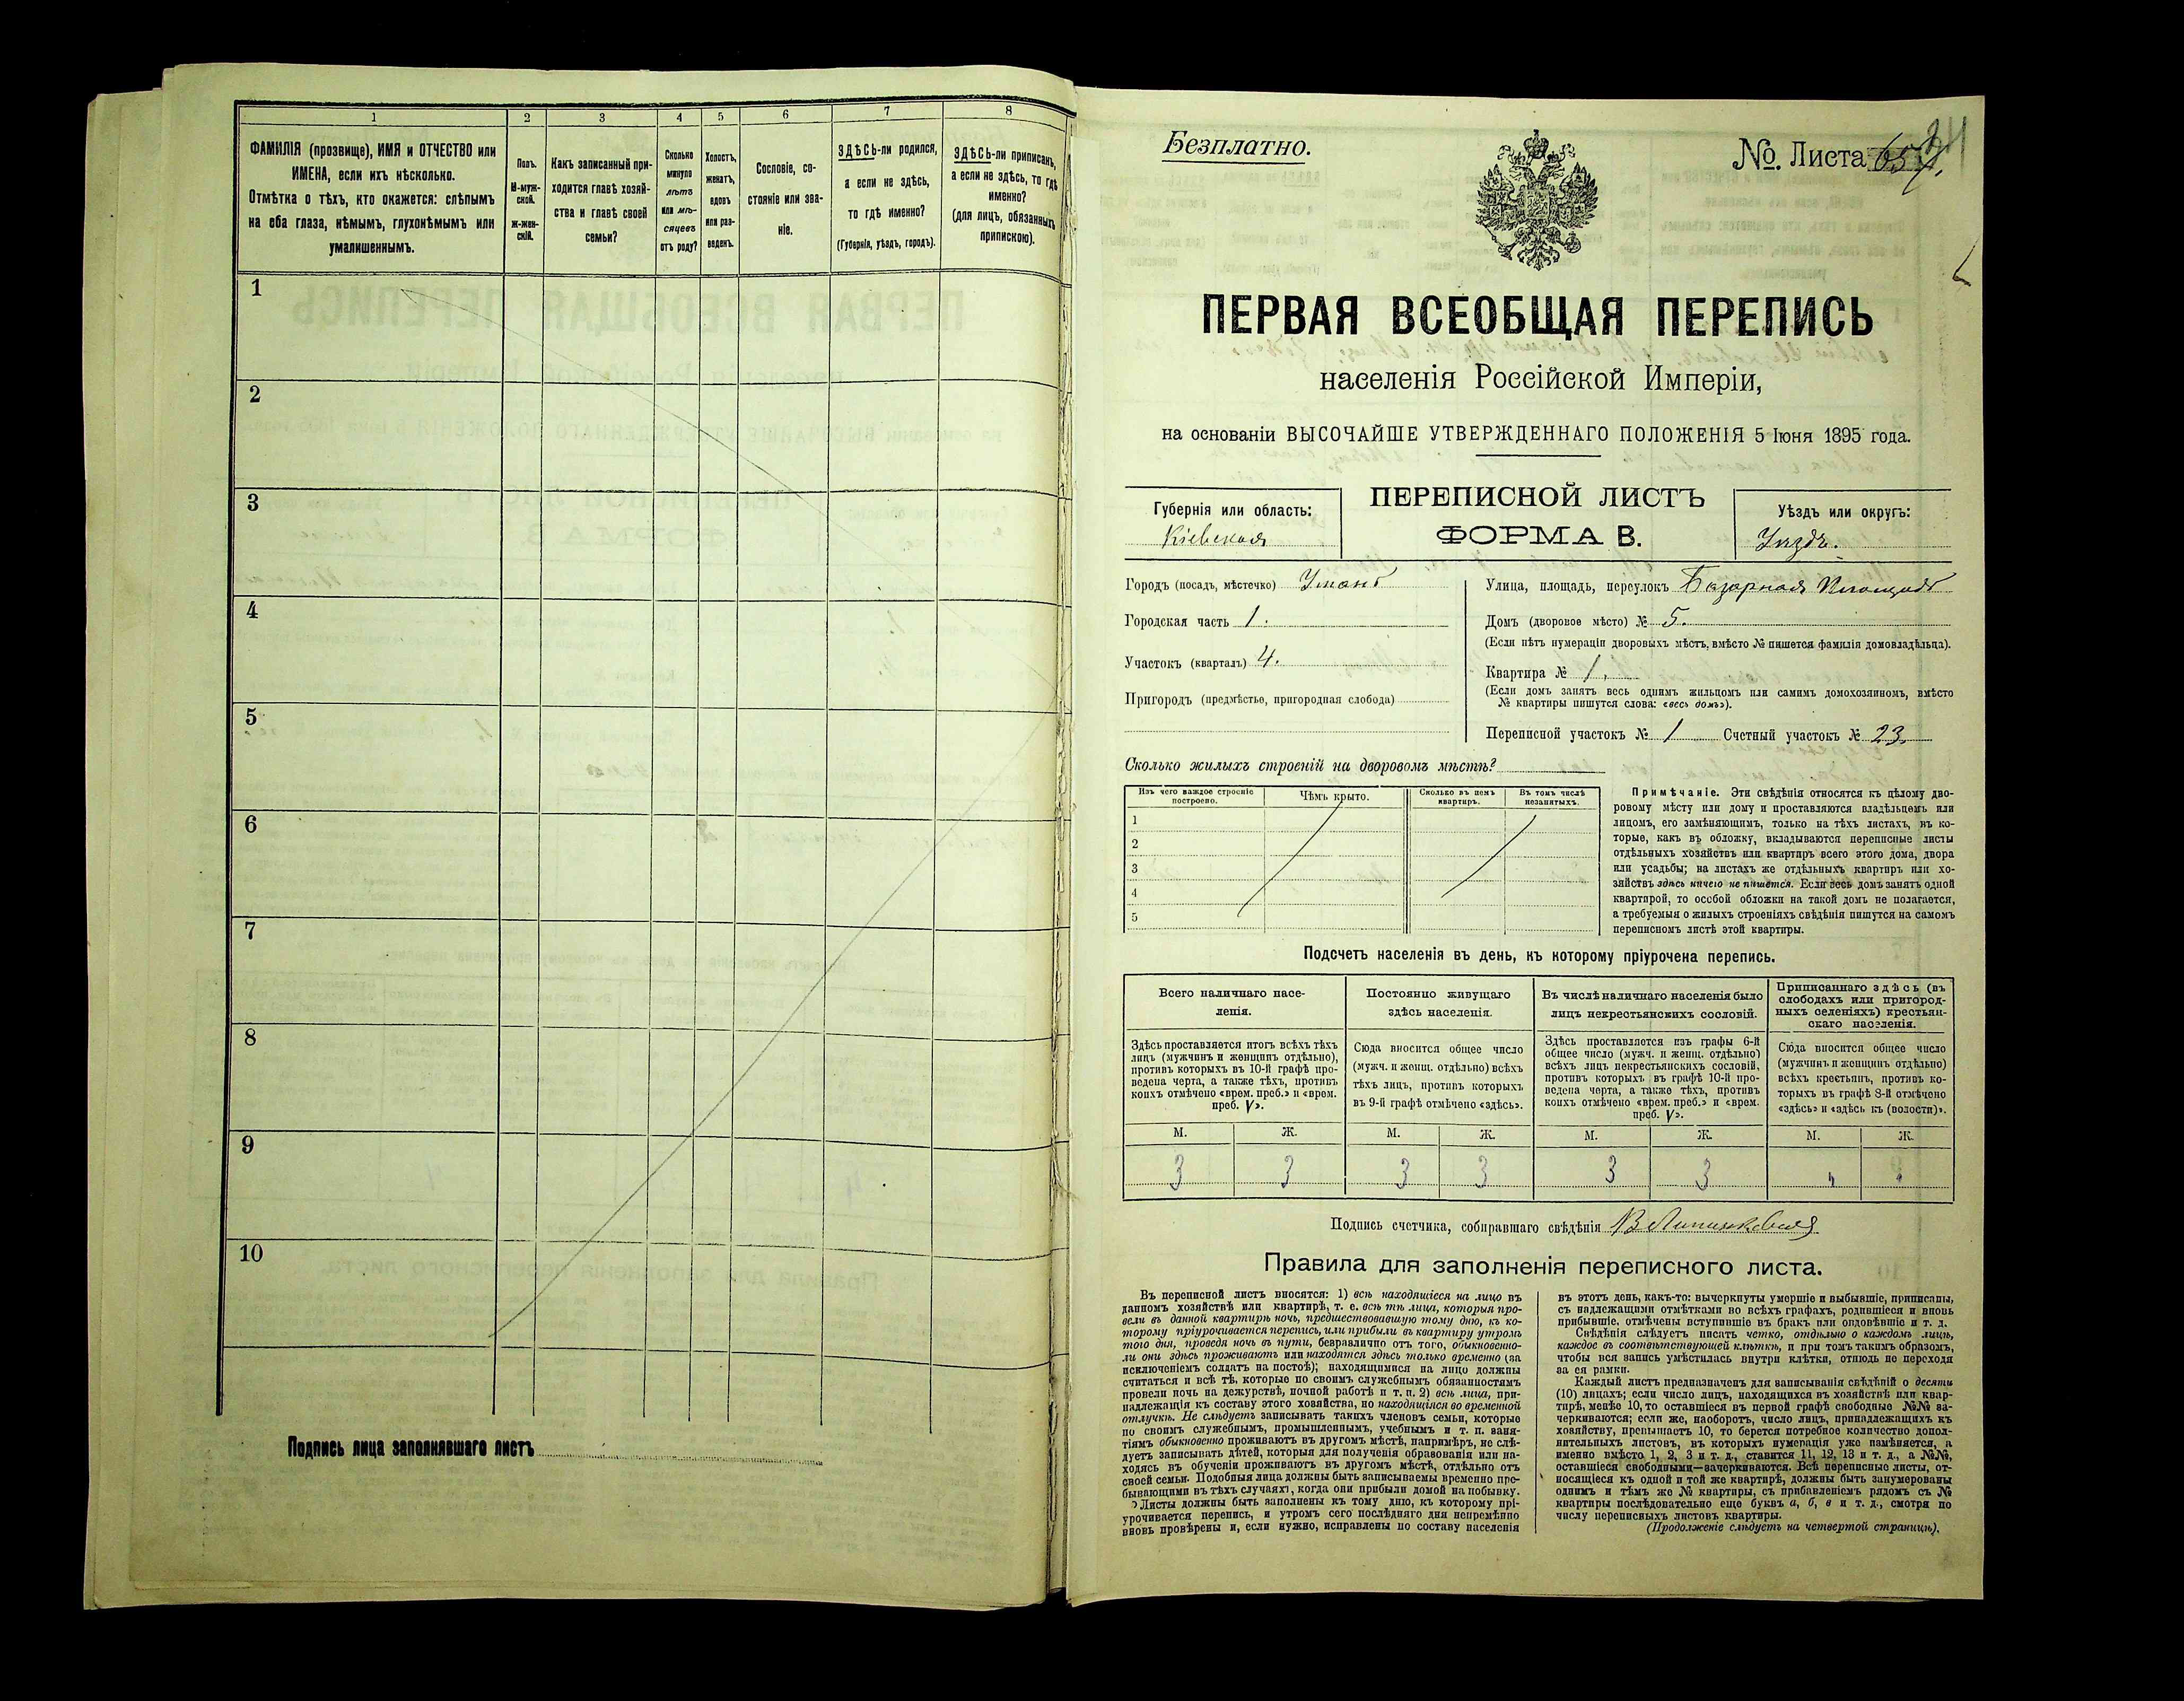 1
2
3
4
5
6
7
8
ФАМИЛІЯ (прозвище), ИМЯ и ОТЧЕСТВО или
ИМЕНА, если ихъ нѣсколько.
Отмѣтка о тѣхъ, кто окажется: слѣпымъ
на оба глаза, нѣмымъ, глухонѣмымъ или
умалишеннымъ.
Полъ.
М-муж-
ской.
Ж-жен-
скій.
Какъ записанный при-
ходится главѣ хозяй-
ства и главѣ своей
семьи?
Сколько
минуло
лѣтъ
или мѣ-
сяцевъ
отъ роду?
Холостъ,
женатъ,
вдовъ
или раз-
веденъ.
Сословіе, со-
стояніе или зва-
ніе.
ЗДѢСЬ-ли родился,
а если не здѣсь,
то гдѣ именно?
(Губернія, уѣздъ, городъ).
ЗДѢСЬ-ли приписанъ,
а если не здѣсь, то гдѣ
именно?
(для лицъ, обязанныхъ
припискою).
1
2
3
4
5
6
7
8
9
10
Подпись лица заполнявшаго листъ
Безплатно.
№. Листа
ПЕРВАЯ ВСЕОБЩАЯ ПЕРЕПИСЬ
населенія Россійской Имперіи,
на основаніи ВЫСОЧАЙШЕ УТВЕРЖДЕННАГО ПОЛОЖЕНІЯ 5 Іюня 1895 года.
Губернія или область:
Кіевская
ПЕРЕПИСНОЙ ЛИСТЪ
ФОРМА В.
Уѣздъ или округъ:
Городъ (посадъ, мѣстечко) Умань
Городская часть 1.
Участокъ (кварталъ) 4.
Пригородъ (предмѣстье, пригородная слобода)
Улица, площадь, переулокъ Базарная Площадь
Домъ (дворовое мѣсто) № 5.
(Если нѣтъ нумераціи дворовыхъ мѣстъ, вмѣсто № пишется фамилія домовладѣльца).
Квартира № 1.
(Если домъ занятъ весь однимъ жильцомъ или самимъ домохозяиномъ, вмѣсто
№ квартиры пишутся слова: «весь домъ»).
Переписной участокъ № 1 Счетный участокъ № 23.
Сколько жилыхъ строеній на дворовомъ мѣстѣ?
Изъ чего каждое строеніе
построено.
Чѣмъ крыто.
Сколько въ немъ
квартиръ.
Въ томъ числѣ
незанятыхъ.
1
2
3
4
5
Примѣчаніе. Эти свѣдѣнія относятся къ цѣлому дво-
ровому мѣсту или дому и проставляются владѣльцемъ или
лицомъ, его замѣняющимъ, только на тѣхъ листахъ, въ ко-
торые, какъ въ обложку, вкладываются переписные листы
отдѣльныхъ хозяйствъ или квартиръ всего этого дома, двора
или усадьбы; на листахъ же отдѣльныхъ квартиръ или хо-
зяйствъ здѣсь ничего не пишется. Если весь домъ занятъ одной
квартирой, то особой обложки на такой домъ не полагается,
а требуемыя о жилыхъ строеніяхъ свѣдѣнія пишутся на самомъ
переписномъ листѣ этой квартиры.
Подсчетъ населенія въ день, къ которому пріурочена перепись.
Всего наличнаго насе-
ленія.
Здѣсь проставляется итогъ всѣхъ тѣхъ
лицъ (мужчинъ и женщинъ отдѣльно),
противъ которыхъ въ 10-й графѣ про-
ведена черта, а также тѣхъ, противъ
коихъ отмѣчено «врем. преб.» и «врем.
преб. V».
Постоянно живущаго
здѣсь населенія.
Сюда вносится общее число
(мужч. и женщ. отдѣльно) всѣхъ
тѣхъ лицъ, противъ которыхъ
въ 9-й графѣ отмѣчено «здѣсь».
Въ числѣ наличнаго населенія было
лицъ некрестьянскихъ сословій.
Здѣсь проставляется изъ графы 6-й
общее число (мужч. и женщ. отдѣльно)
всѣхъ лицъ некрестьянскихъ сословій,
противъ которыхъ въ графѣ 10-й про-
ведена черта, а также тѣхъ, противъ
коихъ отмѣчено «врем. преб.» и «врем.
преб. V».
Приписаннаго здѣсь (въ
слободахъ или пригород-
ныхъ селеніяхъ) крестьян-
скаго населенія.
Сюда вносится общее число
(мужчинъ и женщинъ отдѣльно)
всѣхъ крестьянъ, противъ ко-
торыхъ въ графѣ 8-й отмѣчено
«здѣсь» и «здѣсь къ (волости)».
М. Ж. М. Ж. М. Ж. М. Ж.
3 3 3 3 3 3 " "
Подпись счетчика, собиравшаго свѣдѣнія
Правила для заполненія переписного листа.
Въ переписной листъ вносятся: 1) всѣ находящіеся на лицо въ
данномъ хозяйствѣ или квартирѣ, т. е. всѣ тѣ лица, которыя про-
вели въ данной квартирѣ ночь, предшествовавшую тому дню, къ ко-
торому пріурочивается перепись, или прибыли въ квартиру утромъ
того дня, проведя ночь въ пути, безразлично отъ того, обыкновенно-
ли они здѣсь проживаютъ или находятся здѣсь только временно (за
исключеніемъ солдатъ на постоѣ); находящимися на лицо должны
считаться и всѣ тѣ, которые по своимъ служебнымъ обязанностямъ
провели ночь на дежурствѣ, ночной работѣ и т. п. 2) всѣ лица, при-
надлежащія къ составу этого хозяйства, но находящіяся во временной
отлучкѣ. Не слѣдуетъ записывать такихъ членовъ семьи, которые
по своимъ служебнымъ, промышленнымъ, учебнымъ и т. п. заня-
тіямъ обыкновенно проживаютъ въ другомъ мѣстѣ, напримѣръ, не слѣ-
дуетъ записывать дѣтей, которыя для полученія образованія или на-
ходясь въ обученіи проживаютъ въ другомъ мѣстѣ, отдѣльно отъ
своей семьи. Подобныя лица должны быть записываемы временно пре-
бывающими въ тѣхъ случаяхъ, когда они прибыли домой на побывку.
Листы должны быть заполнены къ тому дню, къ которому прі-
урочивается перепись, и утромъ сего послѣдняго дня непремѣнно
вновь провѣрены и, если нужно, исправлены по составу населенія
въ этотъ день, какъ-то: вычеркнуты умершіе и выбывшіе, приписаны,
съ надлежащими отмѣтками во всѣхъ графахъ, родившіеся и вновь
прибывшіе, отмѣчены вступившіе въ бракъ или овдовѣвшіе и т. д.
Свѣдѣнія слѣдуетъ писать четко, отдѣльно о каждомъ лицѣ,
каждое въ соотвѣтствующей клѣткѣ, и при томъ такимъ образомъ,
чтобы вся запись умѣстилась внутри клѣтки, отнюдь не переходя
за ея рамки.
Каждый листъ предназначенъ для записыванія свѣдѣній о десяти
(10) лицахъ; если число лицъ, находящихся въ хозяйствѣ или квар-
тирѣ, менѣе 10, то оставшіеся въ первой графѣ свободные №№ за-
черкиваются; если же, наоборотъ, число лицъ, принадлежащихъ къ
хозяйству, превышаетъ 10, то берется потребное количество допол-
нительныхъ листовъ, въ которыхъ нумерація уже измѣняется, а
именно вмѣсто 1, 2, 3 и т. д., ставится 11, 12, 13 и т. д., а №№,
оставшіеся свободными—зачеркиваются. Всѣ переписные листы, от-
носящіеся къ одной и той же квартирѣ, должны быть занумерованы
однимъ и тѣмъ же № квартиры, съ прибавленіемъ рядомъ съ №
квартиры послѣдовательно еще буквъ а, б, в и т. д., смотря по
числу переписныхъ листовъ квартиры.
(Продолженіе слѣдуетъ на четвертой страницѣ).